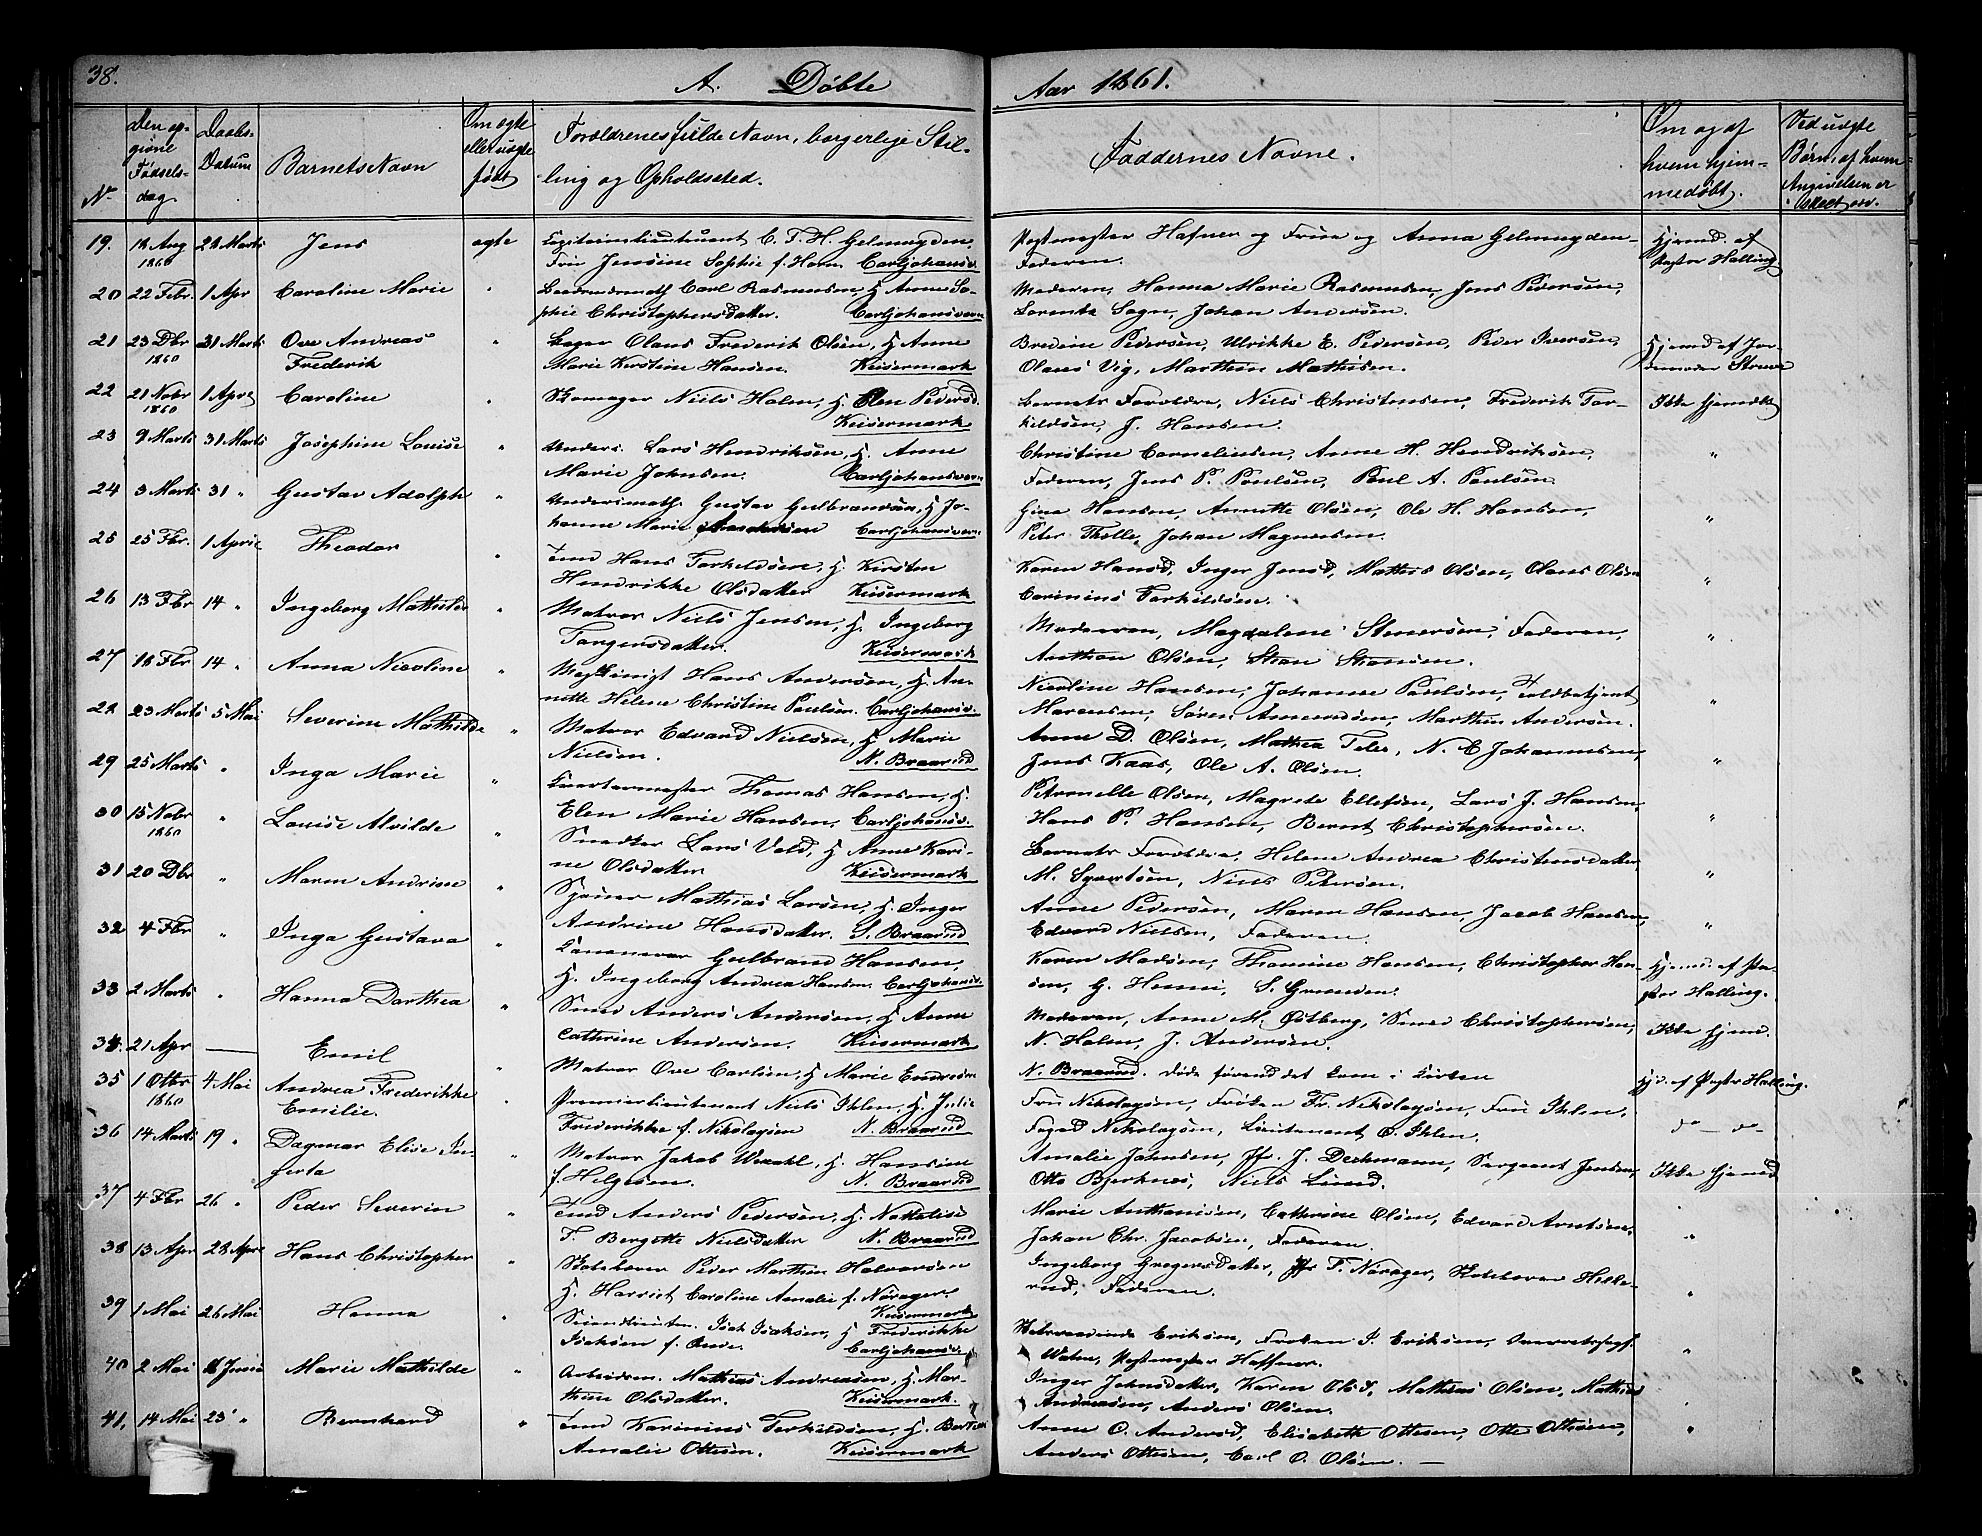 38.
A. Døbte
Aar 1861.
No
Den opgivne Fødselsdag
Daabs-Datum
Barnets Navn
Om ægte eller uægte født
Forældrenes fulde Navn, borgerlige Stilling og Opholdssted.
Faddernes Navne.
Om og af hvem hjemmedøbt.
Ved uægte Børn, af hvem Angivelsen er skeet
19. 18 Aug 1860 28 Marts Jens ægte C. F. H. Gelmuyden,
Fru Jensine Sophie f. Horn Carljohansv.
Postmester Hafner og Frue og Anna Gelmuyden
Faderen.
Hjemd. af Pastor Halling
20 22 Febr 1 Apr Caroline Marie " Carl Rasmussen, H. Anne So-
phie Christophersdatter. Carljohansvern
Moderen, Hanna Marie Rasmussen, Jens Pedersen,
Lorentz Sagn, Johan Andersen.
21 23 Dbr 1860 31 Marts Ove Andreas Frederik " Bager Olaus Frederik Olsen, H Anne
Marie Kirstine Hansen. Keisermark
Bredine Pedersen, Ulrikke E. Pedersen, Peder Iversen,
Olaus Vig, Marthin Mathisen.
Hjemd af Jordemoder Struve
22 21 Novbr 1860 1 April Caroline " Skomager Niels Holen, H. Elen Pedersd.
Keisermark
Barnets Forældre, Niels Christensen, Frederik Tor-
kildsen, J. Hansen.
Ikke hjemdbt
23 9 Marts 31 Marts Josephine Louise " Underc. Lars Hendriksen, H. Anne
Marie Johnsen. Carljohansvern
Christine Corneliusen, Anne H. Hendriksen,
Faderen, Jens P. Paulsen, Paul A. Paulsen
"
24 3 Marts 31 " Gustav Adolph " Gustav Gulbrandsen, H Jo-
hanne Marie Amundsen Carljohansvern
Gina Hansen, Annette Olsen, Ole H. Hansen,
Peter Thelle, Johan Magnussen.
"
25 25 Fbr. 1 April Theodor " Tmd Hans Torkildsen, H. Kirsten
Hendrikke Olsdatter Keisermark
Karen Hansd, Inger Jensd, Mathis Olsen, Olaus Olsen
Carinius Torkildsen.
"
26 13 Fbr 14 " Ingeborg Mathilde " Matros Niels Jensen, H. Ingeborg
Torgersdatter. Keisermark
Moderen, Magdalene Stenersen, Faderen,
Anthon Olsen,
"
27 18 Fbr 14 " Anna Nicoline " Hans Andersen, H. An-
nette Helene Christine Paulsen. Carljohansv.
Nicoline Hansen, Johanne Paulsen, Toldbetjent
Marensen, Søren Amundsen, Marthin Andersen.
"
28 23 Marts 5 Mai Severine Mathilde " Matros Edvard Nielsen, H Marie
Nielsen. N. Braarud
Anne D. Olsen, N. E Johannesen,
Jens Kaas, Ole A. Olsen.
"
29 25 Marts " Inga Marie " Kvartermester Thomas Hansen, H.
Elen Marie Hansen. Carljohansv.
Petronelle Olsen, Magrete Ellefsen, Lars J. Hansen
Hans P. Hansen, Bernt Christophersen.
"
30 15 Novbr 1860 " Louise Alvilde " Snedker Lars Vold, H Anne Kari-
ne Olsdatter Keisermark
Barnets Forældre, Helene Andrea Christensdatter
M. Syvertsen, Niels Petersen.
"
31 20 Dbr " Maren Andrine " Mathias Larsen, H. Inger
Andrine Hansdatter. S. Braarud
Anne Pedersen, Maren Hansen, Jacob Hansen,
Edvard Nielsen, Faderen.
"
32 4 Fbr " Inga Gustava " Kanoneer Gulbrand Hansen,
H. Ingeborg Andrea Hansen Carljohansv.
Karen Madsen, Thomine Hansen, Christopher Han-
sen, G. Henni,
Hjemd. af Pastor Halling.
33 2 Marts " Hanna Dorthea " Smed Anders Andersen, H Anne
Cathrine Andersen. Keisermark
Moderen, Anne M. Østberg, Smed Christophersen,
N. Holen, J. Andersen.
Ikke hjemd.
34. 21 Apr — Emil " Matros Ove Carlsen, H Marie Endresen
N. Braarud. døde førend det kom i Kirken
35 1 Otbr 1860 4 Mai Andrea Frederikke Emilie. " Premierlieutenant Niels Ihlen, H. Julie
Frederikke f. Nikolaysen N. Braarud
Fru Nikolaysen, Frøken Fr. Nikolaysen, Fru Ihlen,
Foged Nikolaysen, Lieutenant O. Ihlen.
Hj. af Pastor Halling.
36 14 Marts 19 " Dagmar Elise " Matros Jakob H. Hansine
f. Helgesen. N. Braarud
Amalie Johnsen, Jfr. J. Dechmann, Sergeant Jensen,
Otto Bjerknes, Niels Lund.
do — do
37 4 Fbr 26 " Peder Severin " Tmd Anders Pedersen, H. Nathalise
T. Bergette Nielsdatter N. Braarud
Marie Anthonisen, Cathrine Olsen, Edvard Arntsen,
Johan Chr. Jacobsen, Faderen.
Ikke hjemd
38 13 Apr 28 Apr Hans Christopher " Peder Marthin Halvorsen
H. Harriet Caroline Amalie f. Norager. Keisermark
Ingeborg Gregersdatter, Jfr F. Norager,
Faderen.
"
39 1 Mai 26 Mai Hanna " Secondlieuten. Isak Isaksen, H Frederikke
Isaksen f. Carljohansv.
Eriksen, Frøken I. Eriksen,
Postmester Haffner.
"
40 2 Mai Junii Marie Mathilde " Arbeidsm. Mathias Andreasen, H. Mar-
thine Olsdatter. Keisermark.
Inger Johnsdatter, Karen Olsd, Mathias Olsen, Mathias
Andreasen, Anders Olsen.
"
41, 14 Mai 23 " Bernhard " Tmd Karinius Torkildsen, H.
Amalie Ottesen. Keisermark
Anne C. Andersd, Elisabeth Ottesen, Otte Ottesen,
Anders Ottesen, Carl O. Olsen. —
"